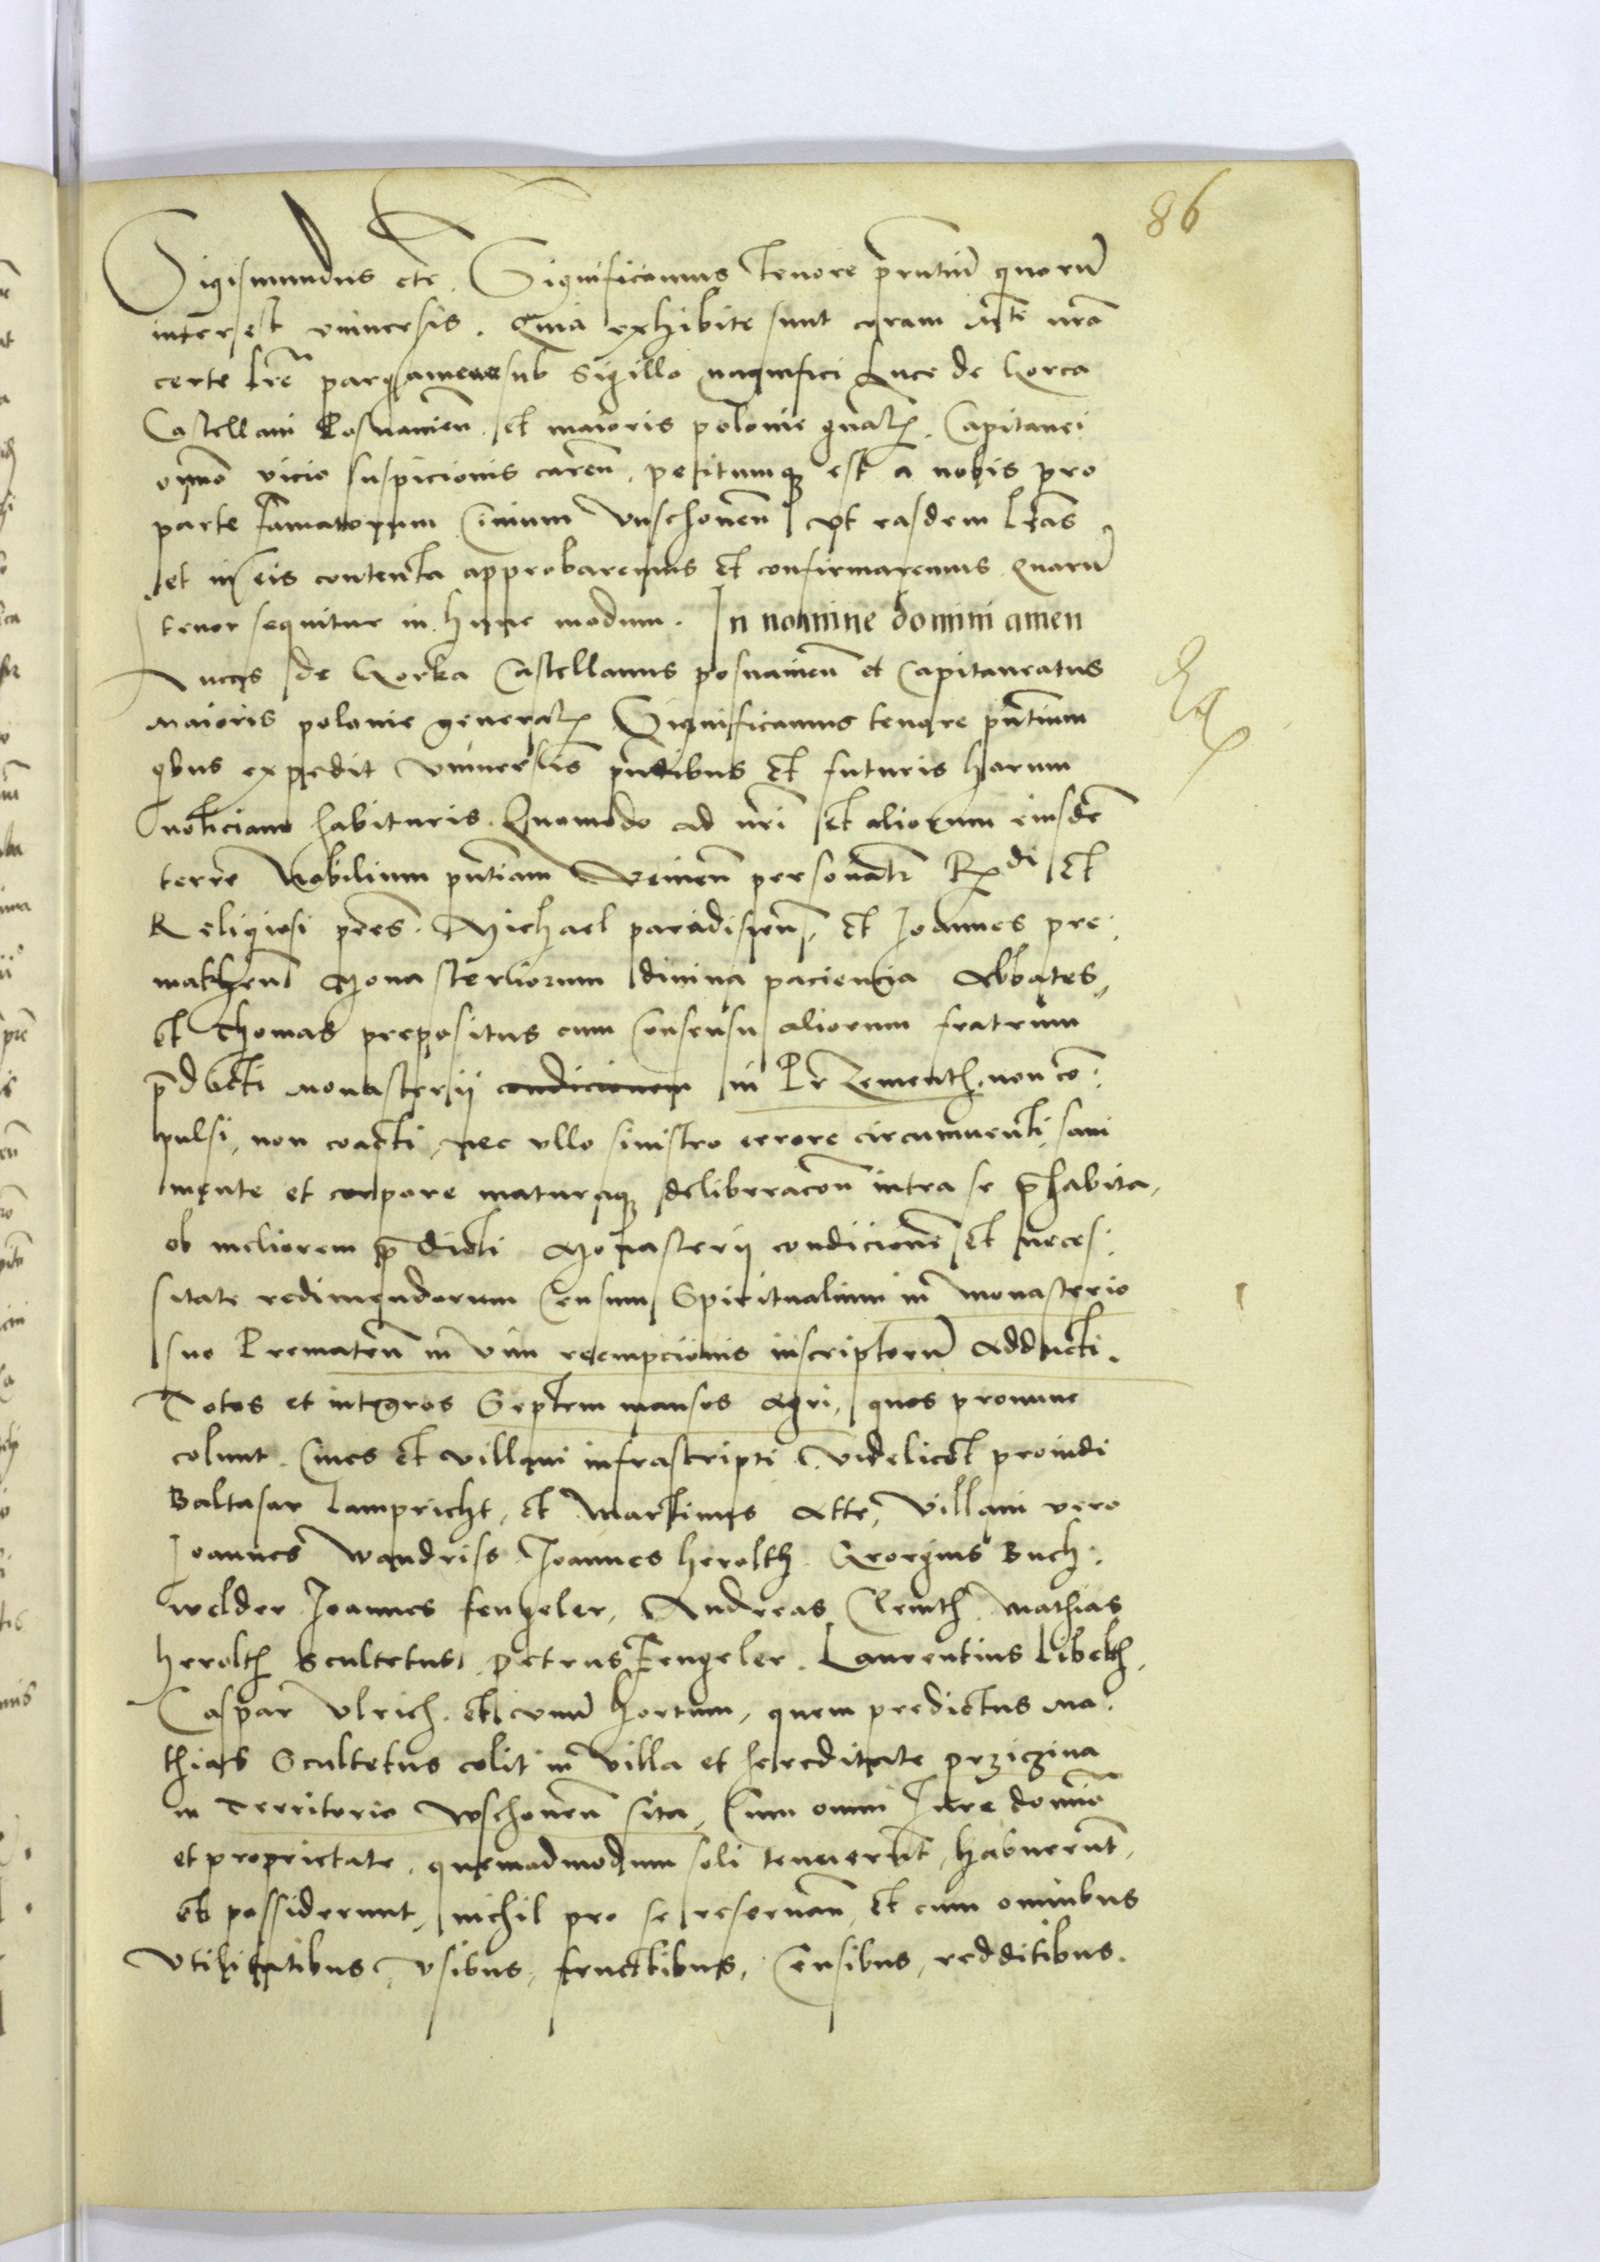 86
Sigismundus etc. Significamus Tenore prntiu quoru
interest vniuersis. Quia exhibite sunt coram Mte nra
certe lre pargamenee sub Sigillo magnifici Luce de Gorca
Castellani Posnanien. et maioris polonie gnalis. Capitanei
omno vicio suspicionis caren. petitumq est a nobis pro
parte famatorum Ciuium Vuschonen vt easdem lras
et in eis contenta approbaremus et confirmaremus Quaru
tenor sequitur in hunc modum. In nomine domini amen
Lucas de Gorka Castellanus posnanien et Capitaneatus
maioris polonie generalis Significamus tenore pntium
qbus expedit vniuersis pntibus et futuris harum
noticiam habituris. Quomodo ad nri et aliorum eiusde
terre Nobilium pntiam Venien personalr Rdi et
Religiosi pres. Michael paradisien. et Joannes pre:
mathen Monasteriorum diuina paciencia Abbates,
et Thomas prepositus cum Consensu aliorum fratrum
pdicti monasterij condicionem in Przementh. non co:
pulsi, non coacti, nec vllo sinistro errore circumuenti, sani
mente et corpore maturaq deliberacon intra se phabita,
ob meliorem pdicti Monasterij condicione et neces:
sitate redimendorum Censuum Spiritualium in monasterio
suo Prematen in vim reempcionis inscriptoru Adducti.
Totos et integros Septem mansos agri, quos pronunc
colunt. Ciues et villani infrascripti videlicet prouidi
Baltasar Lampricht, et Martinus Atte, Villani vero
Joannes Wandriss Joannes herolth. Georgius Buch:
welder Joannes fengeler, Andreas Clemth mathias
herolth Scultetus. Petrus Fengeler. Laurentius Libelth,
Caspar Vlrich. et vnu hortum, quem predictus Ma:
thias Scultetus colit in Villa et hereditate przigzina
in Territorio Wschouen sita, Cum omni Jure domnio
et proprietate. quemadmodum soli tenuerunt, habuerunt,
et possiderunt, nichil pro se reseruan, et cum omnibus
Vtilitatibus, vsibus, fructibus, Censibus, redditibus.